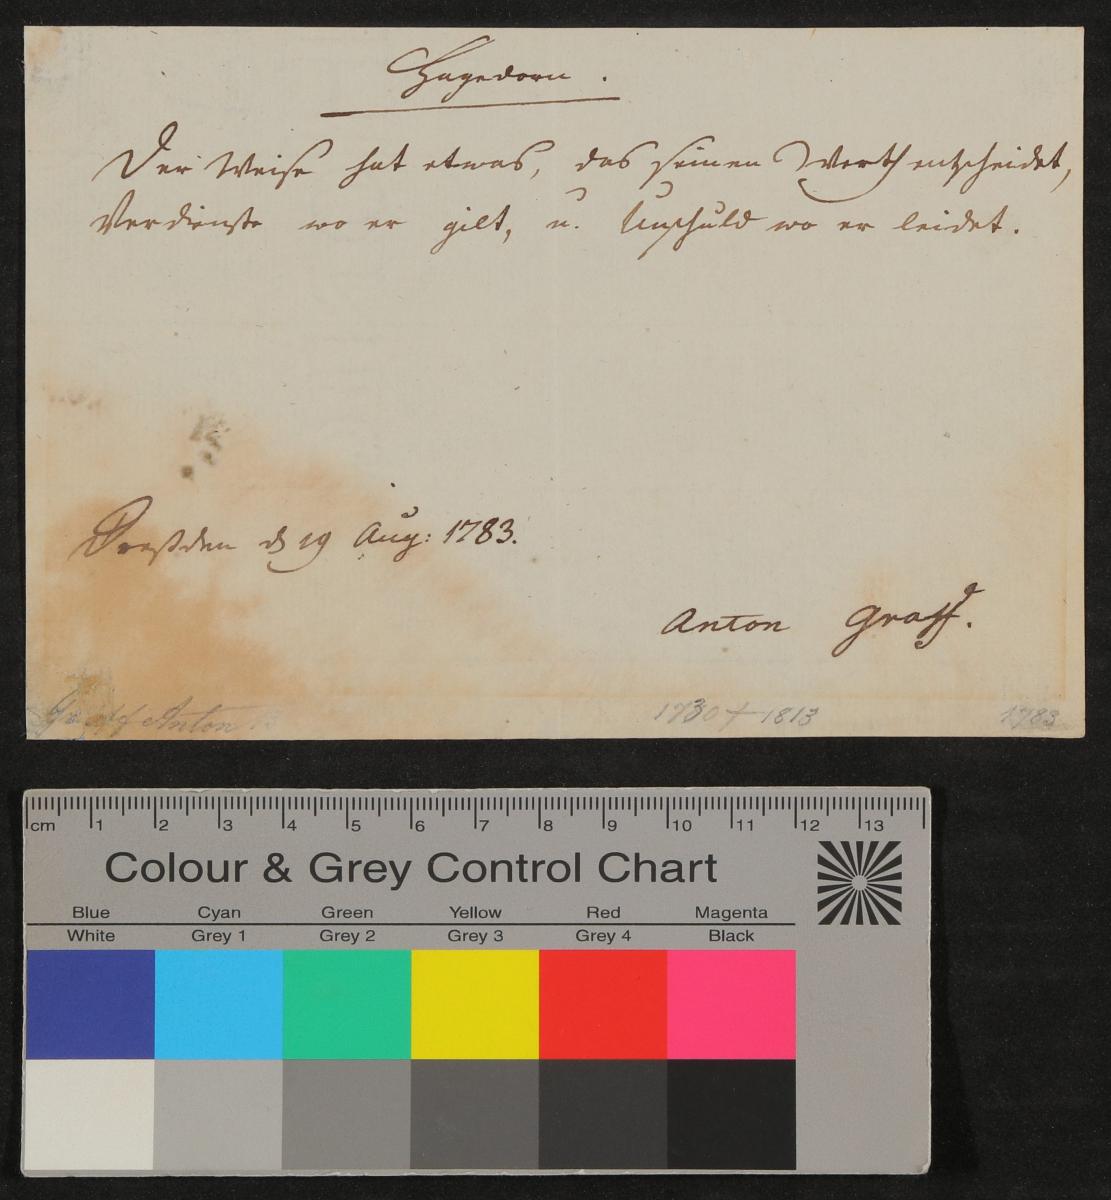 Hagedorn.
Der Weise hat etwas, das seinen Werth entscheidet,
Verdienste wo er gilt, u. Unschuld wo er leidet.
Dreßden d 19 Aug: 1783.
Anton Graff.
Graff Anton
1730 + 1813
1783
cm 1 2 3 4 5 6 7 8 9 10 11 12 13
Colour & Grey Control Chart
Blue Cyan Green Yellow Red Magenta
White Grey 1 Grey 2 Grey 3 Grey 4 Black